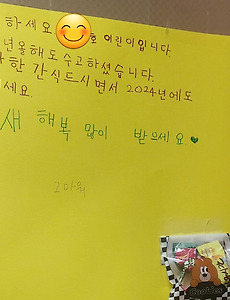 하세요 호 어린이입니다
년올해도 수고하셨습니다.
한 간식드시면서 2024년에도
세요.
새 해 복 많이 받으세요.♥
고마워
Cookies